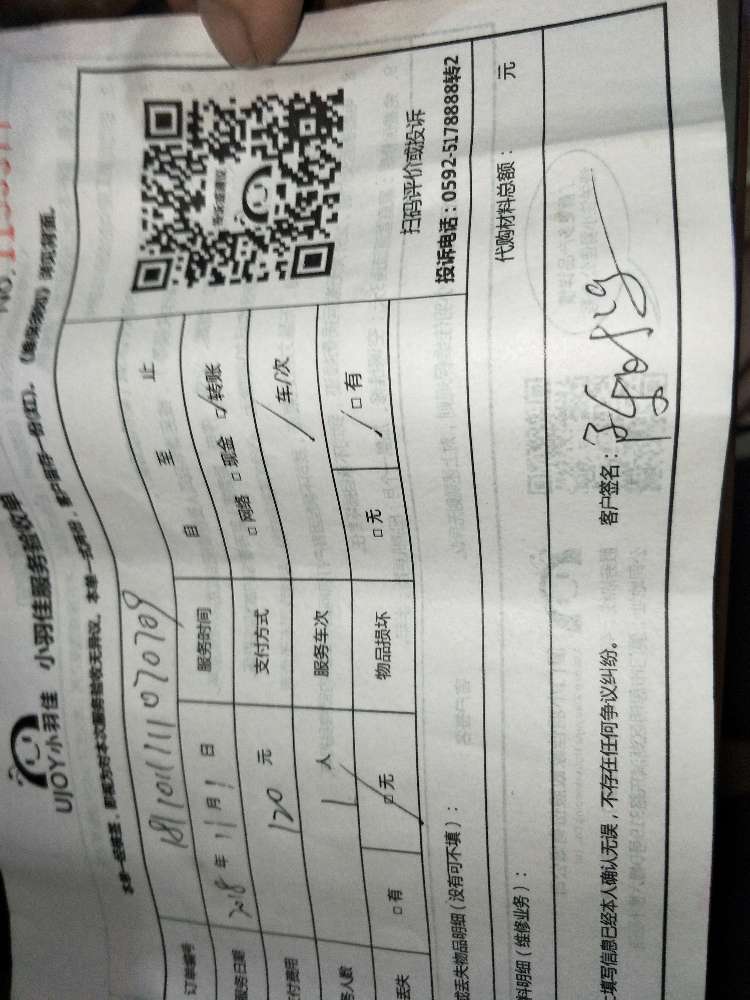 UJOY小羽佳 小羽佳服务验收单
NO.
本单一经签签，即视为对本次服务验收无异议。本单一式两份，客户留存一份(红)。《售保须知》详见背面。
订单编号 181101111070709
服务日期 2018年11月1日 服务时间 自 至 止
付费用 120元 支付方式 □网络 □现金 ☑转账
务人数 1人 服务车次 / 车/次
丢失 □有 ☑无 物品损坏 □无 □有
扫码评价或投诉
投诉电话：0592-5178888转2
或丢失物品明细（没有可不填）：
料明细（维修业务）： 代购材料总额： 元
填写信息已经本人确认无误，不存在任何争议纠纷。 客户签名：